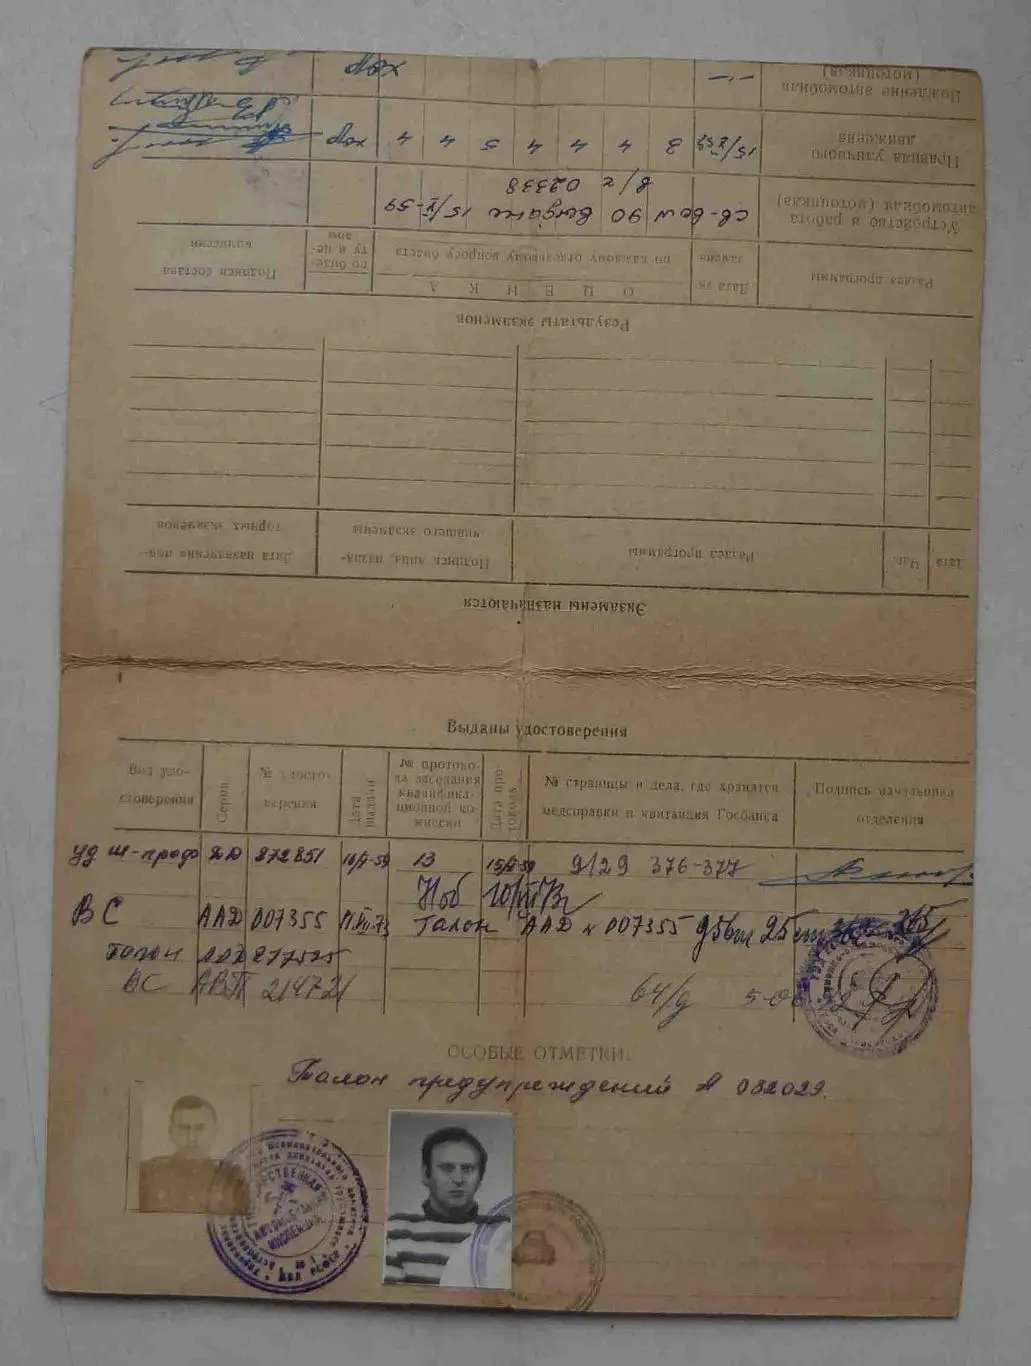 Вождение автомобиля (мотоцикла)
—"— хор
Правила уличного движения
15/V 59 3 4 4 4 5 4 4 хор
Устройство и работа автомобиля (мотоцикла)
св-во ш 90 выдано 15/V-59
в/ч 02338
Раздел программы
Дата экзамена
по каждому отдельному вопросу билета
по билету в целом
Подписи состава комиссии
ОЦЕНКА
Результаты экзаменов
Дата
Час.
Раздел программы
Подпись лица, назначившего экзамены
Дата назначения повторных экзаменов
Экзамены назначаются
Выданы удостоверения
Вид удостоверения
Серия
№ удостоверения
Дата выдачи
№ протокола заседания квалификационной комиссии
Дата протокола
№ страницы и дела, где хранятся медсправки и квитанция Госбанка
Подпись начальника отделения
уд ш-проф ДД 872851 16/V-59 13 15/V-59 9129 376-377
ВС ААД 007355 11.VII.73 Талон ААД № 007355
Талон 877525
ВС АВП 214721 64/д
ОСОБЫЕ ОТМЕТКИ:
Талон предупреждений А 082029.
ГОСУДАРСТВЕННАЯ АВТОМОБИЛЬНАЯ ИНСПЕКЦИЯ